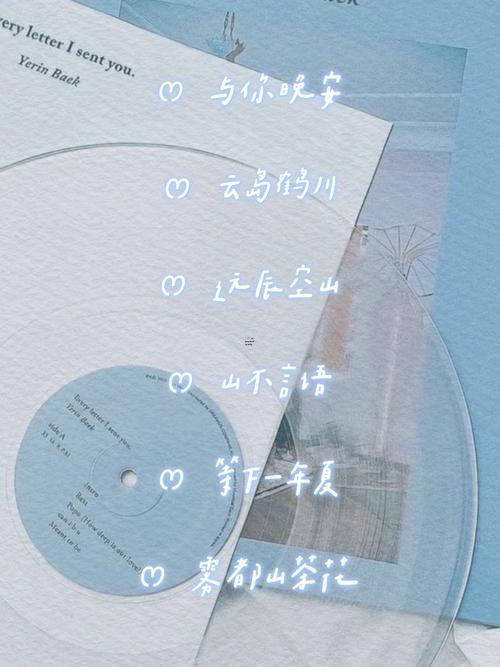 every letter I sent you.
Yerin Baek
♡ 与你晚安
♡ 云岛鹤川
♡ 远辰空山
♡ 山不言语
♡ 等下一年夏
♡ 雾都山茶花
Every letter I sent you.
Yerin Baek
side A
Intro
Rest
Popo (How deep is our love)
can i b u
Meant to be